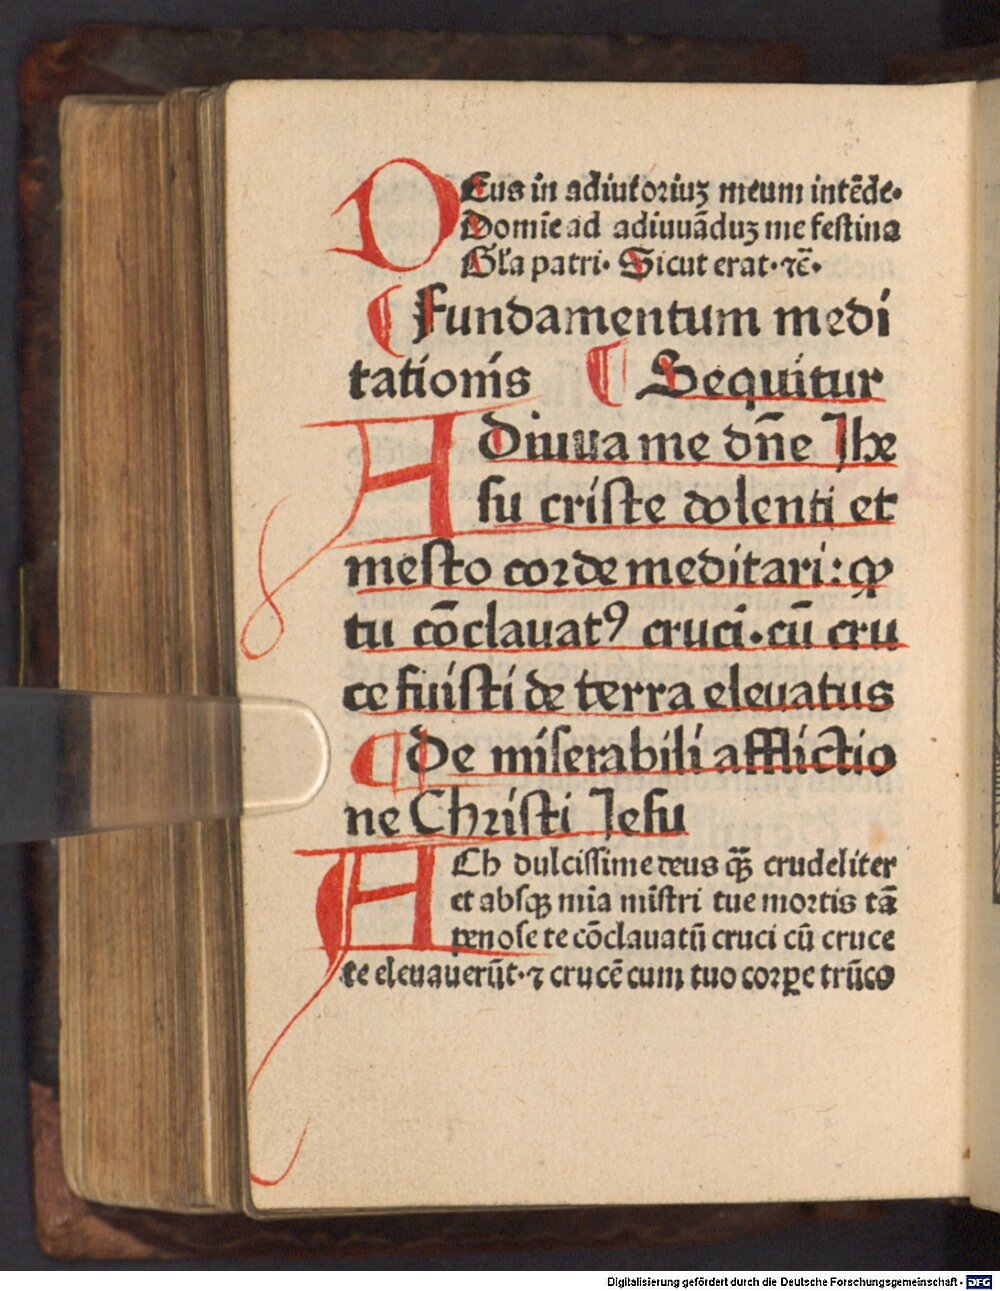 DEus in adiutoriuʒ meum intēde·
Domīe ad adiuuāduʒ me festina
Gl'a patri· Sicut erat· ⁊c̄·
¶ fundamentum medi
tationis ¶ Sequitur
Adiuua me dn̄e Jhe
su criste dolenti et
mesto corde meditari: qꝫ
tu cōclauatꝰ cruci· cū cru
ce fuisti de terra eleuatus
¶ De miserabili afflictio
ne Christi Jesu
ACh dulcissime deus qꝫ̄ crudeliter
et absqꝫ mīa mīstri tue mortis tā
penose te cōclauatū cruci cū cruce
te eleuauerūt· ⁊ crucē cum tuo corꝑe trūco
Digitalisierung gefördert durch die Deutsche Forschungsgemeinschaft - DFG